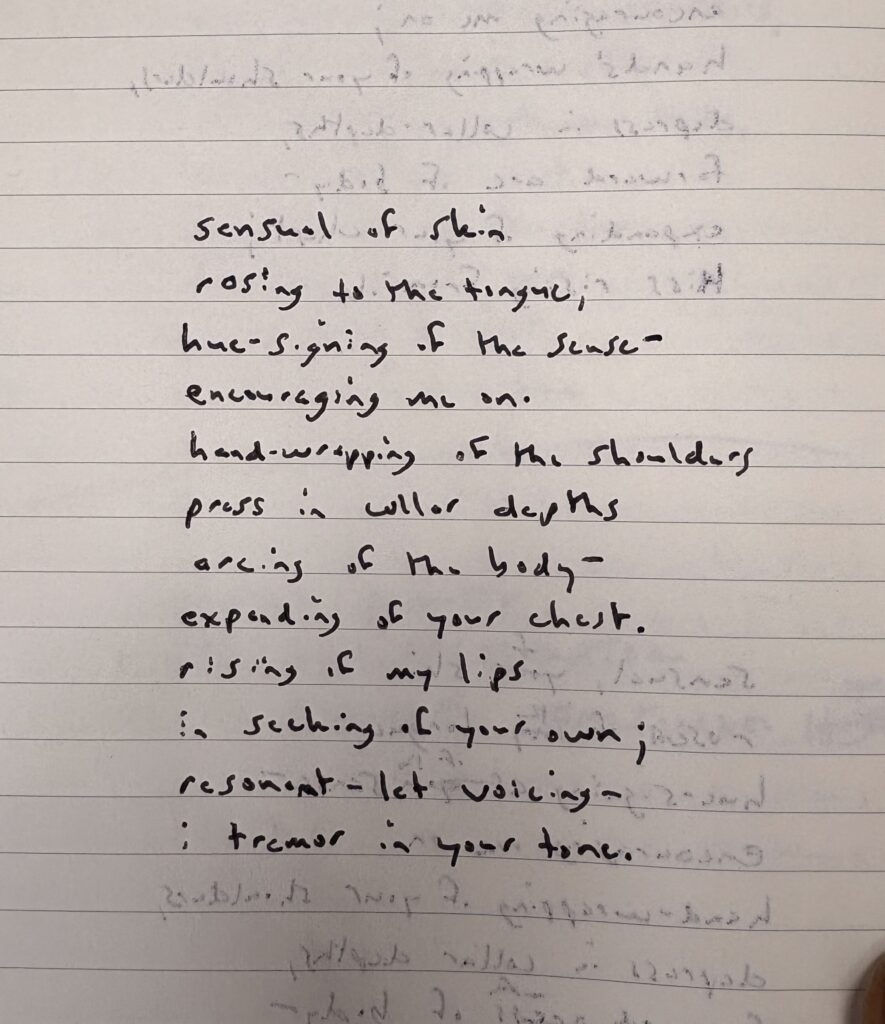 sensual of skin
rosing to the tongue,
hue-signing of the sense-
encouraging me on.
hand-wrapping of the shoulders
press in collar depths
arcing of the body-
expanding of your chest.
rising of my lips
in seeking of your own;
resonant-let voicing-
i tremor in your tone.